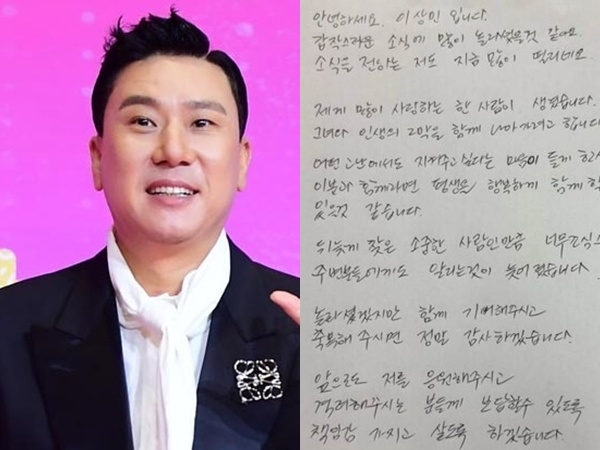 안녕하세요. 이상민 입니다.
갑작스러운 소식에 많이 놀라셨을것 같아요.
소식을 전하는 저도 지금 많이 떨리네요.
제게 많이 사랑하는 한 사람이 생겼습니다.
그녀와 인생의 2막을 함께 나아가려고 합니다
어떤 고난에서도 지켜주고 싶다는 마음이 들게 한
이분과 함께라면 평생을 행복하게 함께 할
있을것 같습니다.
뒤늦게 찾은 소중한 사람인만큼 너무 조심스
주변분들에게도 알리는것이 늦어졌습니다.
놀라셨겠지만 함께 기뻐해주시고
축복해 주시면 정말 감사하겠습니다.
앞으로도 저를 응원해주시고
격려해주시는 분들께 보답할수 있도록
책임감 가지고 살도록 하겠습니다.